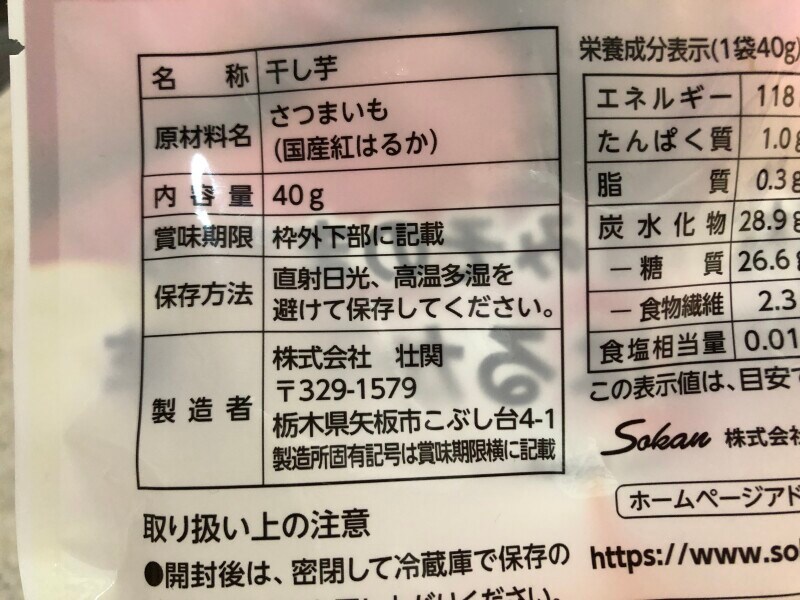 名称 干し芋
原材料名 さつまいも
(国産紅はるか)
内容量 40g
賞味期限 枠外下部に記載
保存方法 直射日光、高温多湿を
避けて保存してください。
製造者 株式会社 壮関
〒329-1579
栃木県矢板市こぶし台4-1
製造所固有記号は賞味期限横に記載
取り扱い上の注意
●開封後は、密閉して冷蔵庫で保存の
栄養成分表示(1袋40g)
エネルギー 118
たんぱく質 1.0g
脂質 0.3g
炭水化物 28.9g
－糖質 26.6g
－食物繊維 2.3
食塩相当量 0.01
この表示値は、目安で
Sokan 株式会社
ホームページアド
https://www.so